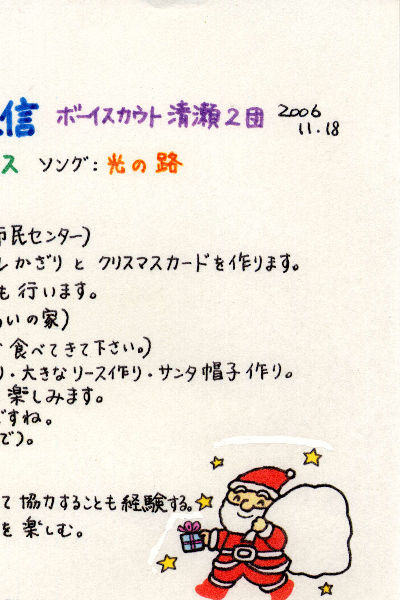 信 ボーイスカウト 清瀬2団 2006
11.18
ス ソング：光の路
市民センター)
かざり と クリスマスカードを作ります。
も 行います。
いの家)
食べてきて下さい。)
り・大きなリース作り・サンタ帽子作り。
楽しみます。
ですね。
で)。
て 協力することも経験する。
を 楽しむ。